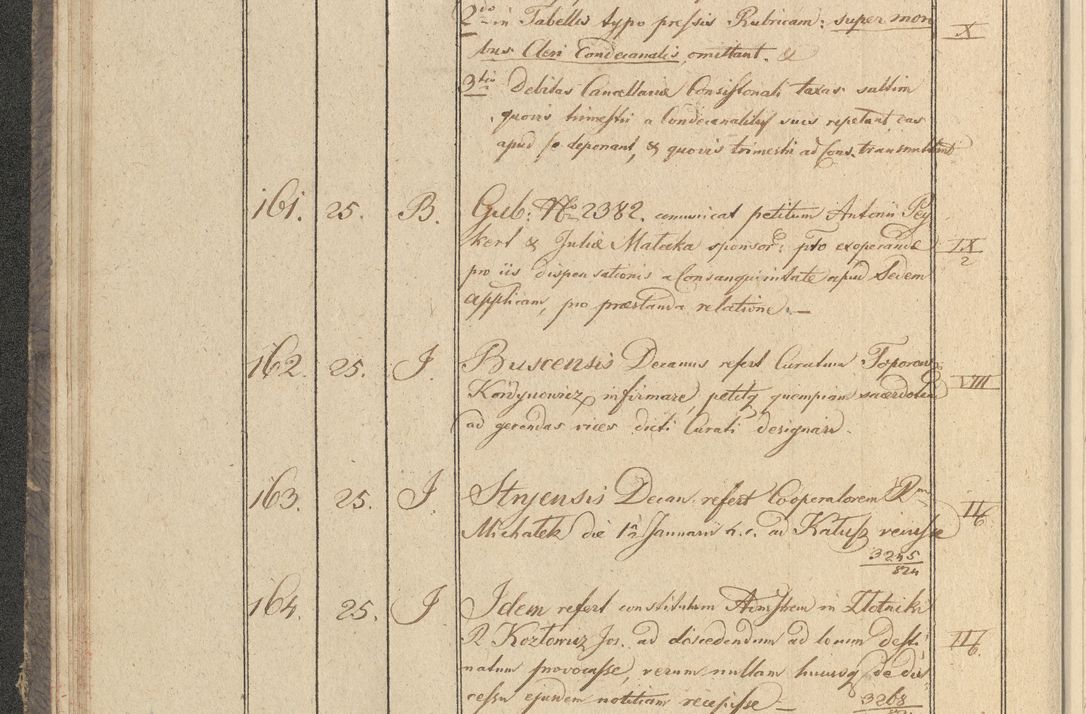 2do in Tabellis typo pressis Rubricam: super mori
bus Cleri Condecanalis, omittant. &
X
3tio Debitas Cancellariae Consistoriali taxas saltim
quovis trimestri a Condecanalibus suis repetant, eas
apud se deponant, & quovis trimestri ad Cons. transmittant
161. 25. B. Gub: No 2382. comunicat petitum Antonii Pey
kert & Juliae Mataska sponsor: pto exoperandae
IX/2
pro iis dispensationis a Consanguinitate apud Sedem
Applicam, pro praestanda relatione. —
162. 25. J. Buscensis Decanus refert Curatum Toporow
VIII
Kordynowicz infirmare, petitq quempiam sacerdotem
ad gerendas vices dicti Curati designari.
163. 25. J. Stryensis Decan. refert Cooperatorem Rm
Michalek die 1a Januarii a. c. ad Kalusz venisse
3245/824
164. 25. J Idem refert constitutum Admstrem in Zlotniki
R. Kozlowicz Jos. ad discedendum ad locum desti
natum provocasse, verum nullam hucusq de dis
cessu ejusdem notitiam recepisse —
3268